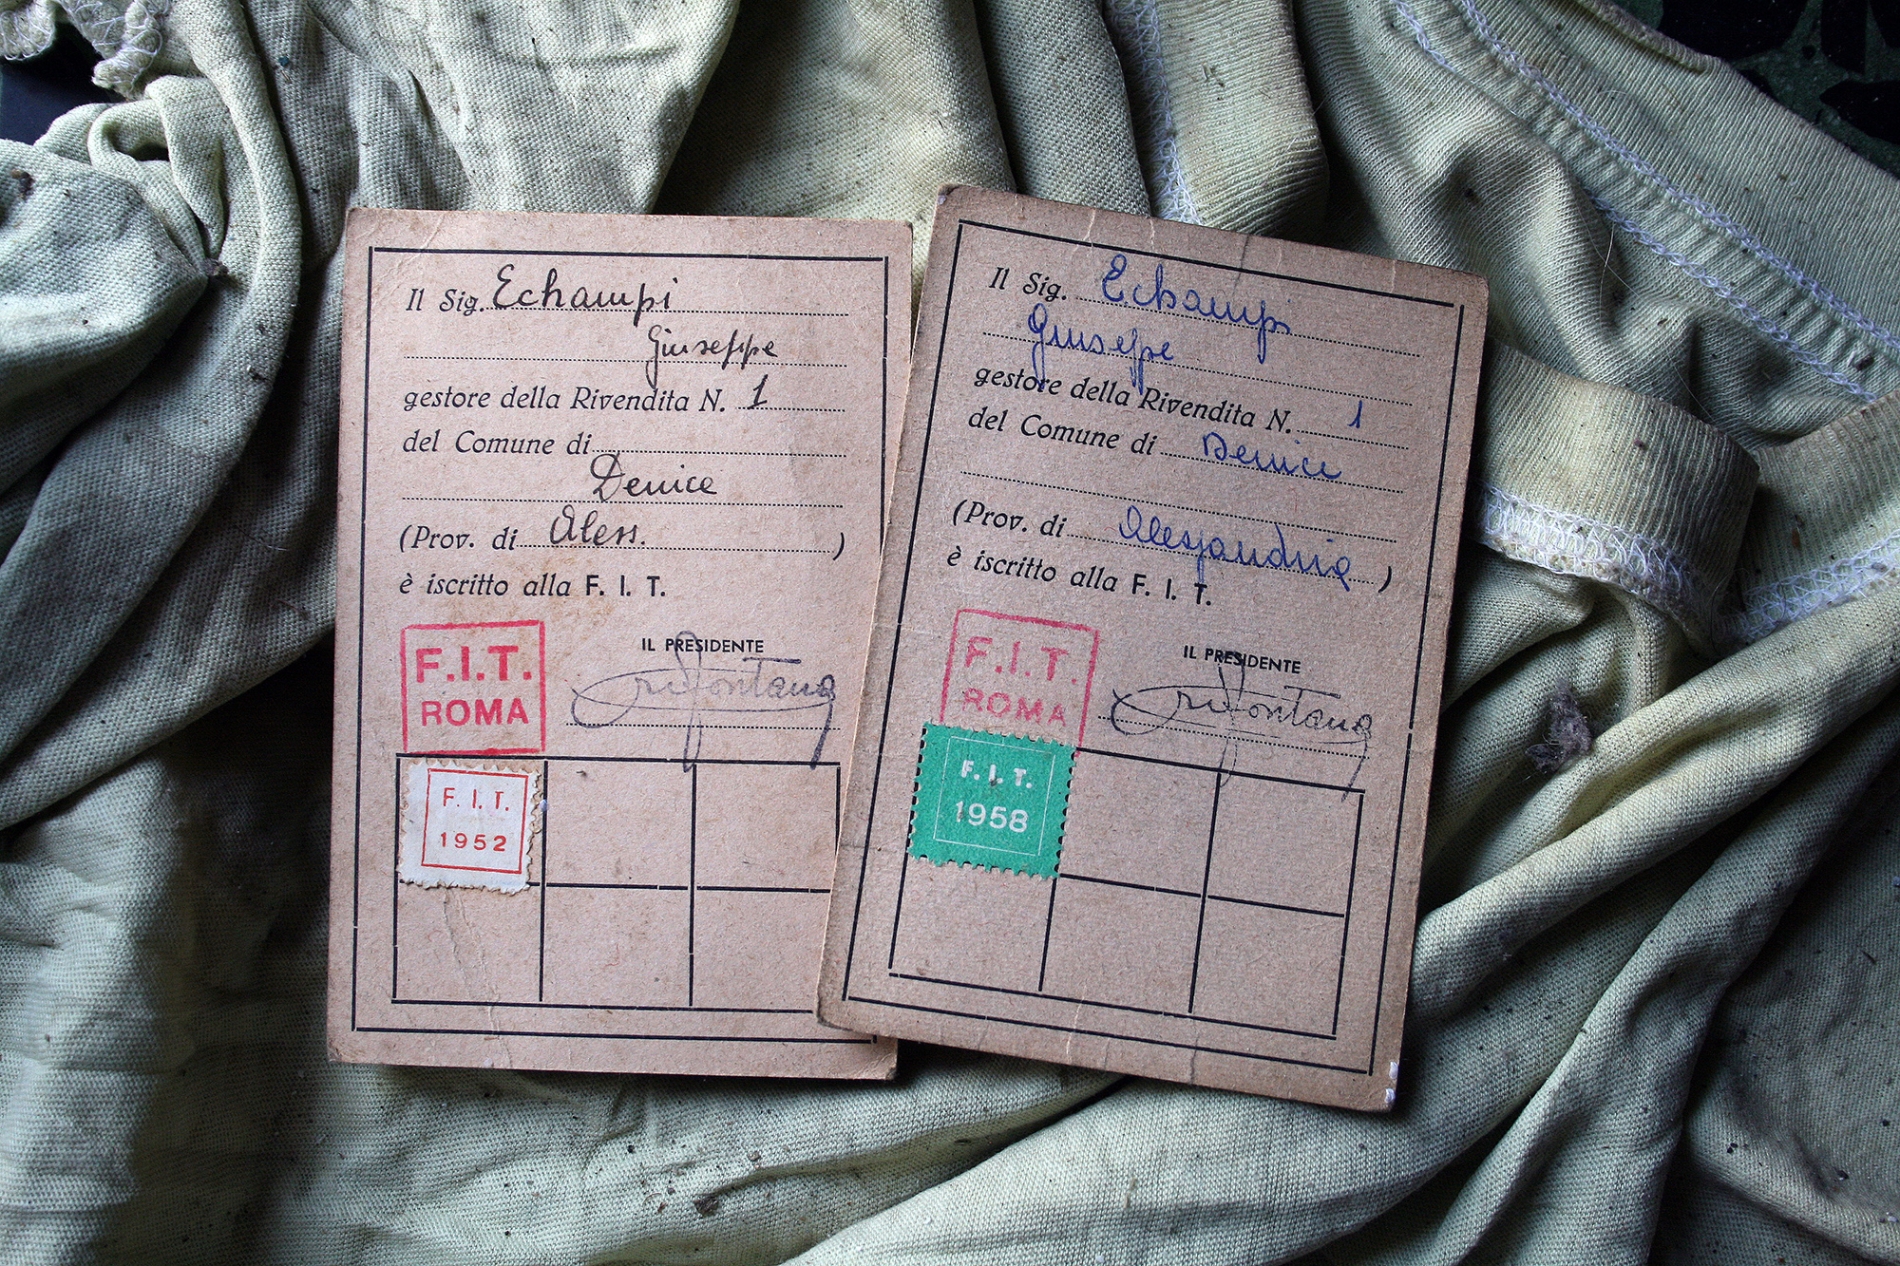 Il Sig. Echampi
Giuseppe
gestore della Rivendita N. 1
del Comune di
Denice
(Prov. di Aless. )
è iscritto alla F. I. T.
F.I.T.
ROMA
IL PRESIDENTE
F. I. T.
1952
Il Sig. Echampi
Giuseppe
gestore della Rivendita N. 1
del Comune di Denice
(Prov. di Alessandria )
è iscritto alla F. I. T.
F.I.T.
ROMA
IL PRESIDENTE
F. I. T.
1958